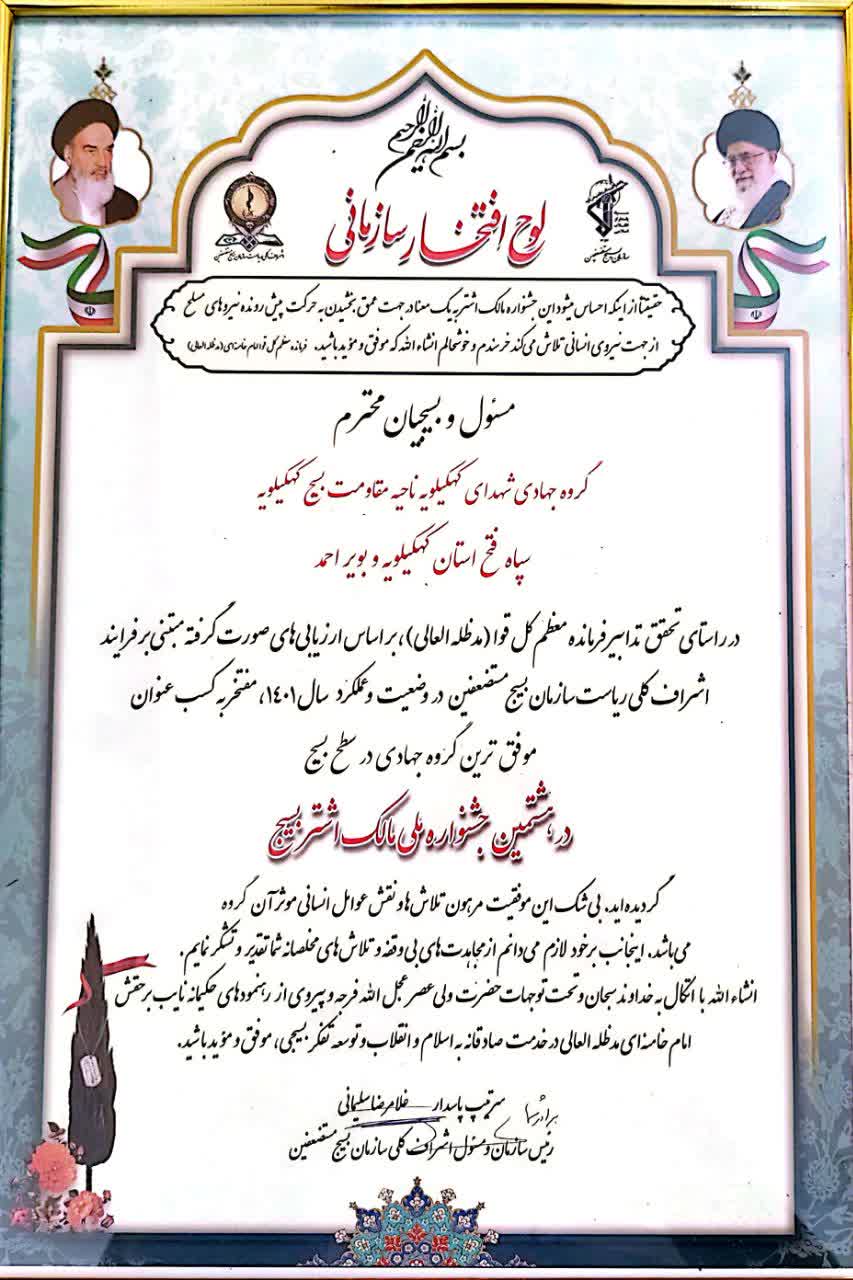 بسم الله الرحمن الرحیم
لوح افتخار سازمانی
حقیقتاً از اینکه احساس میشود این جشنواره مالک اشتر به یک معنا در جهت عمق بخشیدن به حرکت پیش رونده نیروهای مسلح
از جهت نیروی انسانی تلاش می‌کند خرسندم و خوشحالم انشاء الله که موفق و مؤید باشید. فرمانده معظم کل قوا امام خامنه‌ای (مدظله العالی)
مسئول و بسیجیان محترم
گروه جهادی شهدای کهگیلویه ناحیه مقاومت بسیج کهگیلویه
سپاه فتح استان کهگیلویه و بویر احمد
در راستای تحقق تدابیر فرمانده معظم کل قوا (مدظله العالی)، بر اساس ارزیابی‌های صورت گرفته مبتنی بر فرایند
اشراف کلی ریاست سازمان بسیج مستضعفین در وضعیت و عملکرد سال ۱۴۰۱، مفتخر به کسب عنوان
موفق ترین گروه جهادی در سطح بسیج
در هشتمین جشنواره ملی مالک اشتر بسیج
گردیده‌اید. بی شک این موفقیت مرهون تلاش‌ها و نقش عوامل انسانی موثر آن گروه
می‌باشد. اینجانب بر خود لازم می‌دانم از مجاهدت‌های بی وقفه و تلاش‌های مخلصانه شما تقدیر و تشکر نمایم.
انشاء الله با اتکال به خداوند سبحان و تحت توجهات حضرت ولی عصر عجل الله فرجه و پیروی از رهنمودهای حکیمانه نایب بر حقش
امام خامنه‌ای مدظله العالی در خدمت صادقانه به اسلام و انقلاب و توسعه تفکر بسیجی، موفق و مؤید باشید.
برادر شما
سرتیپ پاسدار غلامرضا سلیمانی
رئیس سازمان و مسئول اشراف کلی سازمان بسیج مستضعفین